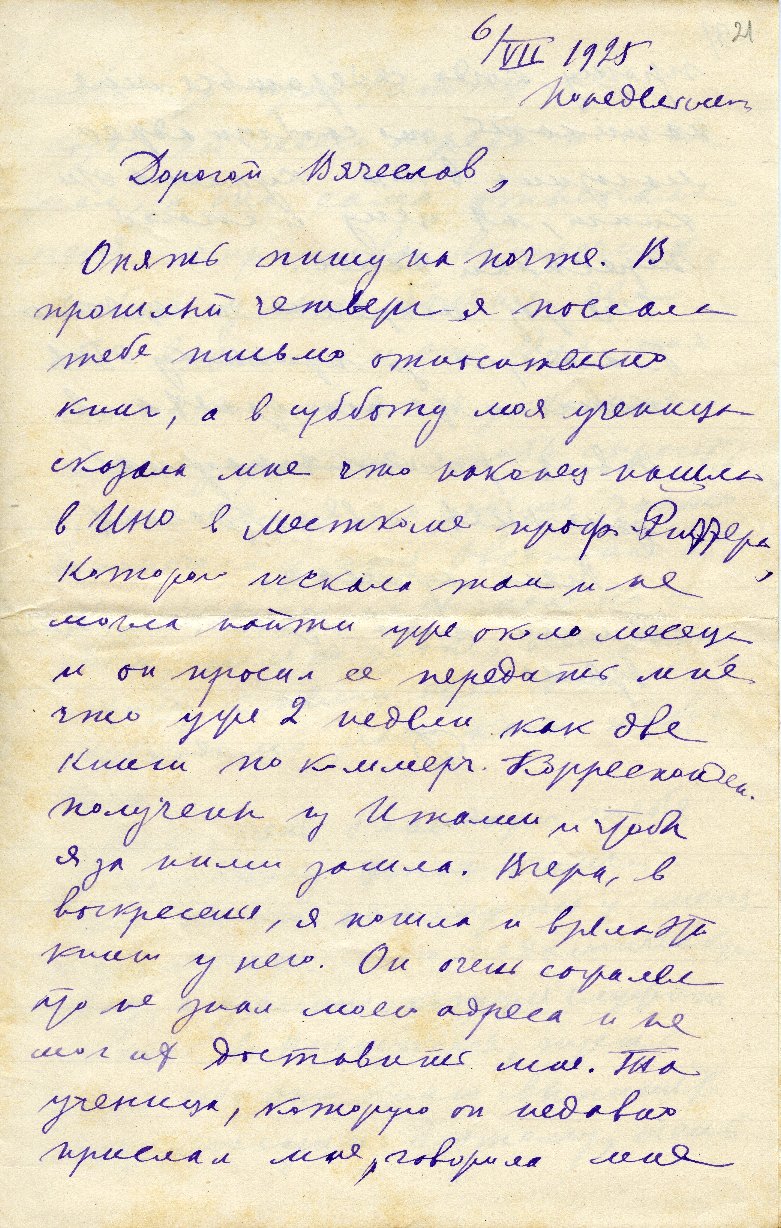 21
6/VII 1925.
Понедельник
Дорогой Вячеслав,
Опять пишу на почте. В
прошлый четверг я послала
тебе письмо относительно
книг, а в субботу моя ученица
сказала мне что наконец нашла
в ИНО в Месткоме проф.
которого искала там и не
могла найти уже около месяца
и он просил ее передать мне
что уже 2 недели как две
книги по коммерч. Корреспонден.
получены из Италии и чтобы
я за ними зашла. Вчера, в
воскресенье, я пошла и взяла эти
книги у него. Он очень сожалел
что не знал моего адреса и не
мог их доставить мне. Та
ученица, которую он недавно
прислал мне, говорила мне